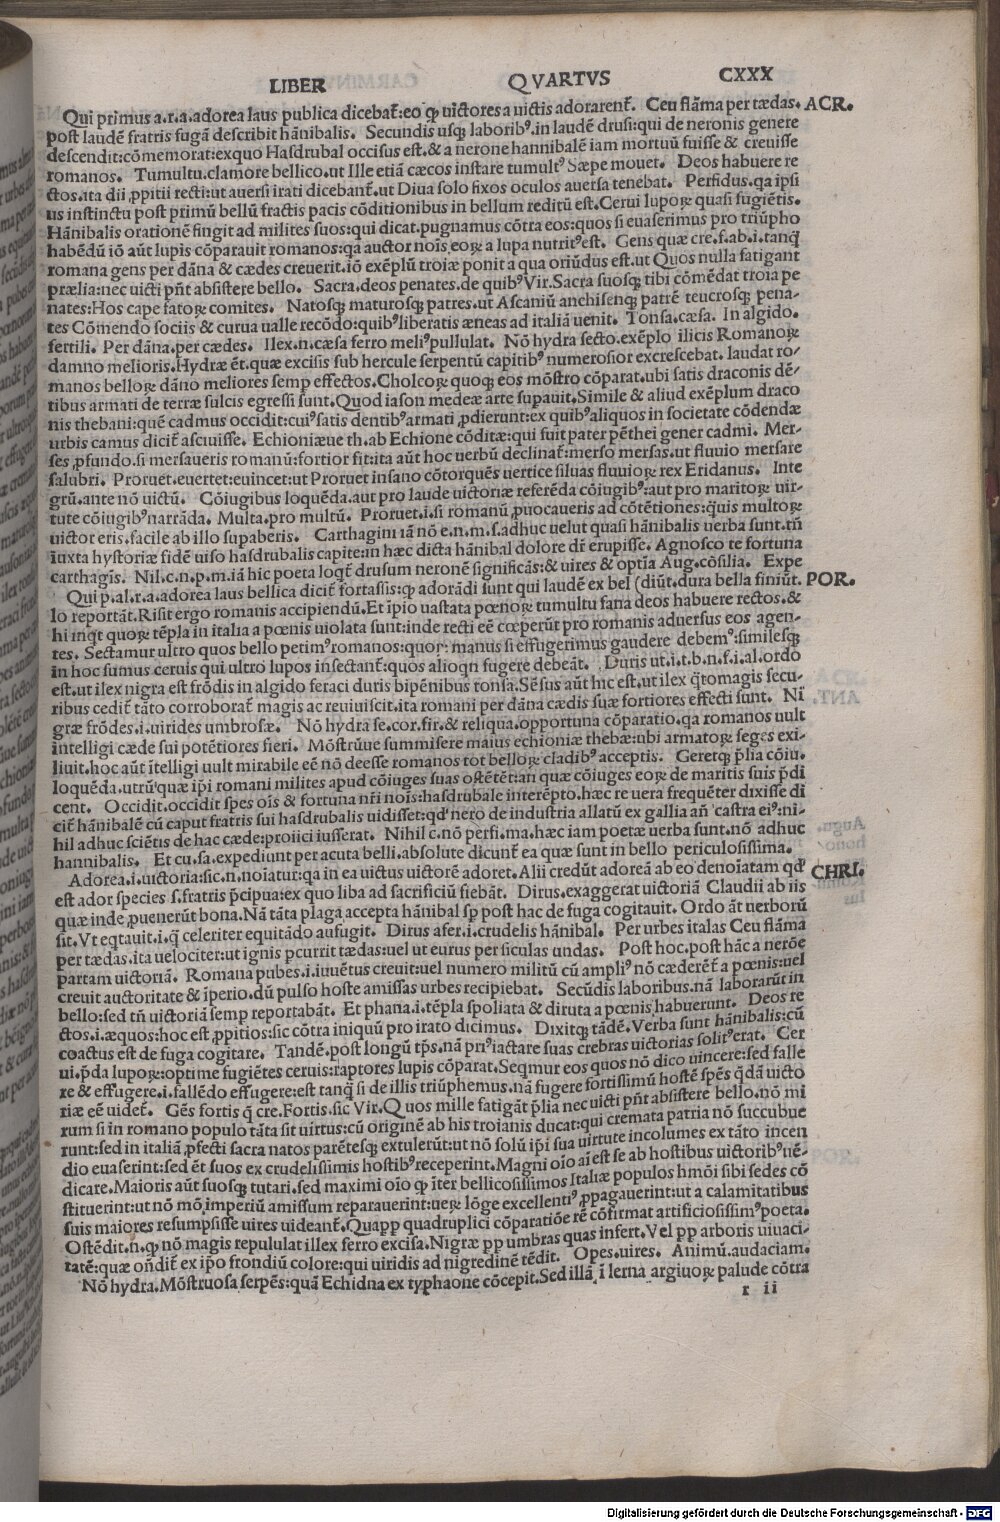 LIBER QVARTVS CXXX
Qui primus a.r.a.adorea laus publica dicebat᷑:eo ꝙ uictores a uictis adorarent᷑. Ceu flãma per tædas. ACR.
post laudẽ fratris fugã describit hãnibalis. Secundis usqꝫ laboribꝰ.in laudẽ drusi:qui de neronis genere
descendit:cõmemorat:exquo Hasdrubal occisus est.& a nerone hannibalẽ iam mortuũ fuisse & creuisse
romanos. Tumultu.clamore bellico.ut Ille etiã cæcos instare tumultꝰ Sæpe mouet. Deos habuere re
ctos.ita dii ꝓpitii recti:ut auersi irati dicebant᷑.ut Diua solo fixos oculos auersa tenebat. Perfidus.qa ipsi
us instinctu post primũ bellũ fractis pacis cõditionibus in bellum reditũ est.Cerui lupoꝝ quasi fugiẽtis.
Hãnibalis orationẽ fingit ad milites suos:qui dicat.pugnamus cõtra eos:quos si euaserimus pro triũpho
habẽdũ iõ aũt lupis cõparauit romanos:qa auctor nois eoꝝ a lupa nutritꝰest. Gens quæ cre.f.ab.i.tanq̃
romana gens per dãna & cædes creuerit.iõ exẽplũ troiæ ponit a qua oriũdus est.ut Quos nulla fatigant
prælia:nec uicti pñt absistere bello. Sacra.deos penates.de quibꝰVir.Sacra suosqꝫ tibi cõmẽdat troia pe
nates:Hos cape fatoꝝ comites. Natosqꝫ maturosqꝫ patres.ut Ascaniũ anchisenqꝫ patrẽ teucrosqꝫ pena-
tes Cõmendo sociis & curua ualle recõdo:quibꝰliberatis æneas ad italiã uenit. Tonsa.cæsa. In algido.
fertili. Per dãna.per cædes. Ilex.n.cæsa ferro meliꝰpullulat. Nõ hydra secto.exẽplo ilicis Romanoꝝ
damno melioris.Hydræ ẽt.quæ excisis sub hercule serpentũ capitibꝰ numerosior excrescebat. laudat ro-
manos belloꝝ dãno meliores semp effectos.Cholcoꝝ quoqꝫ eos mõstro cõparat.ubi satis draconis dẽ-
tibus armati de terræ sulcis egressi sunt.Quod iason medeæ arte supauit.Simile & aliud exẽplum draco
nis thebani:quẽ cadmus occidit:cuiꝰsatis dentibꝰarmati ꝓdierunt:ex quibꝰaliquos in societate cõdendæ
urbis camus dicit᷑ asciuisse. Echioniæue th.ab Echione cõditæ:qui fuit pater pẽthei gener cadmi. Mer-
ses ꝓfundo.si mersaueris romanũ:fortior fit:ita aũt hoc uerbũ declinat᷑:merso mersas.ut fluuio mersare
salubri. Proruet.euertet:euincet:ut Proruet insano cõtorquẽs uertice siluas fluuioꝝ rex Eridanus. Inte
grũ.ante nõ uictũ. Cõiugibus loquẽda.aut pro laude uictoriæ referẽda cõiugibꝰ:aut pro maritoꝝ uir-
tute cõiugibꝰnarrãda. Multa.pro multũ. Proruet.i.si romanũ ꝓuocaueris ad cõtẽtiones:quis multoꝝ
uictor eris.facile ab illo supaberis. Carthagini iã nõ e.n.m.s.adhuc uelut quasi hãnibalis uerba sunt.tñ
iuxta hystoriæ fidẽ uiso hasdrubalis capite:in hæc dicta hãnibal dolore dr̃ erupisse. Agnosco te fortuna
carthagis. Nil.c.n.p.m.iã hic poeta loqt᷑ drusum neronẽ significãs:& uires & optĩa Aug.cõsilia. Expe
Qui p.al.r.a.adorea laus bellica dicit᷑ fortassis:ꝙ adorãdi sunt qui laudẽ ex bel (diũt.dura bella finiũt. POR.
lo reportãt.Risit ergo romanis accipiendũ.Et ĩpio uastata pœnoꝝ tumultu fana deos habuere rectos.&
hi inqt quoꝝ tẽpla in italia a pœnis uiolata sunt:inde recti eẽ cœperũt pro romanis aduersus eos agen-
tes. Sectamur ultro quos bello petimꝰromanos:quoꝝ manus si effugerimus gaudere debemꝰ:similesqꝫ
in hoc sumus ceruis qui ultro lupos insectant᷑:quos alioqn fugere debeãt. Duris ut.i.t.b.n.f.i.al.ordo
est.ut ilex nigra est frõdis in algido feraci duris bipẽnibus tonsa.Sẽsus aũt hic est.ut ilex q̃tomagis secu-
ribus cedit᷑ tãto corroborat᷑ magis ac reuiuiscit.ita romani per dãna cædis suæ fortiores effecti sunt. Ni
græ frõdes.i.uirides umbrosæ. Nõ hydra se.cor.fir.& reliqua.opportuna cõparatio.qa romanos uult
intelligi cæde sui potẽtiores fieri. Mõstrũue summisere maius echioniæ thebæ:ubi armatoꝝ seges exi-
liuit.hoc aũt ĩtelligi uult mirabile eẽ nõ deesse romanos tot belloꝝ cladibꝰ acceptis. Geretqꝫ p̃lia cõiu.
loquẽda.utrũꝰquæ ip̃i romani milites apud cõiuges suas ostẽtẽt:an quæ cõiuges eoꝝ de maritis suis p̃di
cent. Occidit.occidit spes ois & fortuna nr̃i nois:hasdrubale interẽpto.hæc re uera frequẽter dixisse di
cit᷑ hãnibalẽ cũ caput fratris sui hasdrubalis uidisset:qđ nero de industria allatũ ex gallia añ castra eiꝰ:ni-
hil adhuc sciẽtis de hac cæde:proiici iusserat. Nihil c.nõ perfi.ma.hæc iam poetæ uerba sunt.nõ adhuc
hannibalis. Et cu.sa.expediunt per acuta belli.absolute dicunt᷑ ea quæ sunt in bello periculosissima.
Adorea.i.uictoria:sic.n.noiatur:qa in ea uictus uictorẽ adoret.Alii credũt adoreã ab eo denoĩatam qđ CHRI.
est ador species s.fratris p̃cipua:ex quo liba ad sacrificiũ fiebãt. Dirus.exaggerat uictoriã Claudii ab iis
quæ inde ꝓuenerũt bona.Nã tãta plaga accepta hãnibal sp̃ post hac de fuga cogitauit. Ordo ãt uerborũ
sit.Vt eqtauit.i.q̃ celeriter equitãdo aufugit. Dirus afer.i.crudelis hãnibal. Per urbes italas Ceu flãma
per tædas.ita uelociter:ut ignis pcurrit tædas:uel ut eurus per siculas undas. Post hoc.post hãc a nerõe
partam uictoriã. Romana pubes.i.iuuẽtus creuit:uel numero militũ cũ ampliꝰ nõ cæderẽt᷑ a pœnis:uel
creuit auctoritate & ĩperio.dũ pulso hoste amissas urbes recipiebat. Secũdis laboribus.nã laborarũt in
bello:sed tñ uictoriã semp reportabãt. Et phana.i.tẽpla spoliata & diruta a pœnis habuerunt. Deos re
ctos.i.æquos:hoc est ꝓpitios:sic cõtra iniquũ pro irato dicimus. Dixitqꝫ tãdẽ.Verba sunt hãnibalis:cũ
coactus est de fuga cogitare. Tandẽ.post longũ tp̃s.nã priꝰiactare suas crebras uictorias solitꝰerat. Cer
ui.p̃da lupoꝝ:optime fugiẽtes ceruis:raptores lupis cõparat.Seqmur eos quos nõ dico uincere:sed falle
re & effugere.i.fallẽdo effugere:est tanq̃ si de illis triũphemus.nã fugere fortissimũ hostẽ spẽs q̃dã uicto
riæ eẽ uidet᷑. Gẽs fortis q̃ cre.Fortis.sic Vir.Quos mille fatigãt p̃lia nec uicti pñt absistere bello.nõ mi
rum si in romano populo tãta sit uirtus:cũ originẽ ab his troianis ducat:qui cremata patria nõ succubue
runt:sed in italiã ꝓfecti sacra natos parẽtesqꝫ extulerũt:ut nõ solũ ip̃i sua uirtute incolumes ex tãto incen
dio euaserint:sed ẽt suos ex crudelissimis hostibꝰreceperint.Magni oĩo aĩ est se ab hostibus uictoribꝰuẽ-
dicare.Maioris aũt suosqꝫ tutari.sed maximi oĩo ꝙ iter bellicosissimos Italiæ populos hmõi sibi sedes cõ
stituerint:ut nõ mõ imperiũ amissum reparauerint:ueꝝ lõge excellentiꝰ ꝓpagauerint:ut a calamitatibus
suis maiores resumpsisse uires uideant᷑.Quapp quadruplici cõparatiõe rẽ cõfirmat artificiosissimꝰpoeta.
Ostẽdit.n.ꝙ nõ magis repululat illex ferro excisa.Nigræ pp umbras quas infert.Vel pp arboris uiuaci-
tatẽ:quæ oñdit᷑ ex ip̃o frondiũ colore:qui uiridis ad nigredinẽ tẽdit. Opes.uires. Animũ.audaciam.
Nõ hydra.Mõstruosa serpẽs:quã Echidna ex typhaone cõcepit.Sed illã ĩ lerna argiuoꝝ palude cõtra
r ii
Digitalisierung gefördert durch die Deutsche Forschungsgemeinschaft - DFG